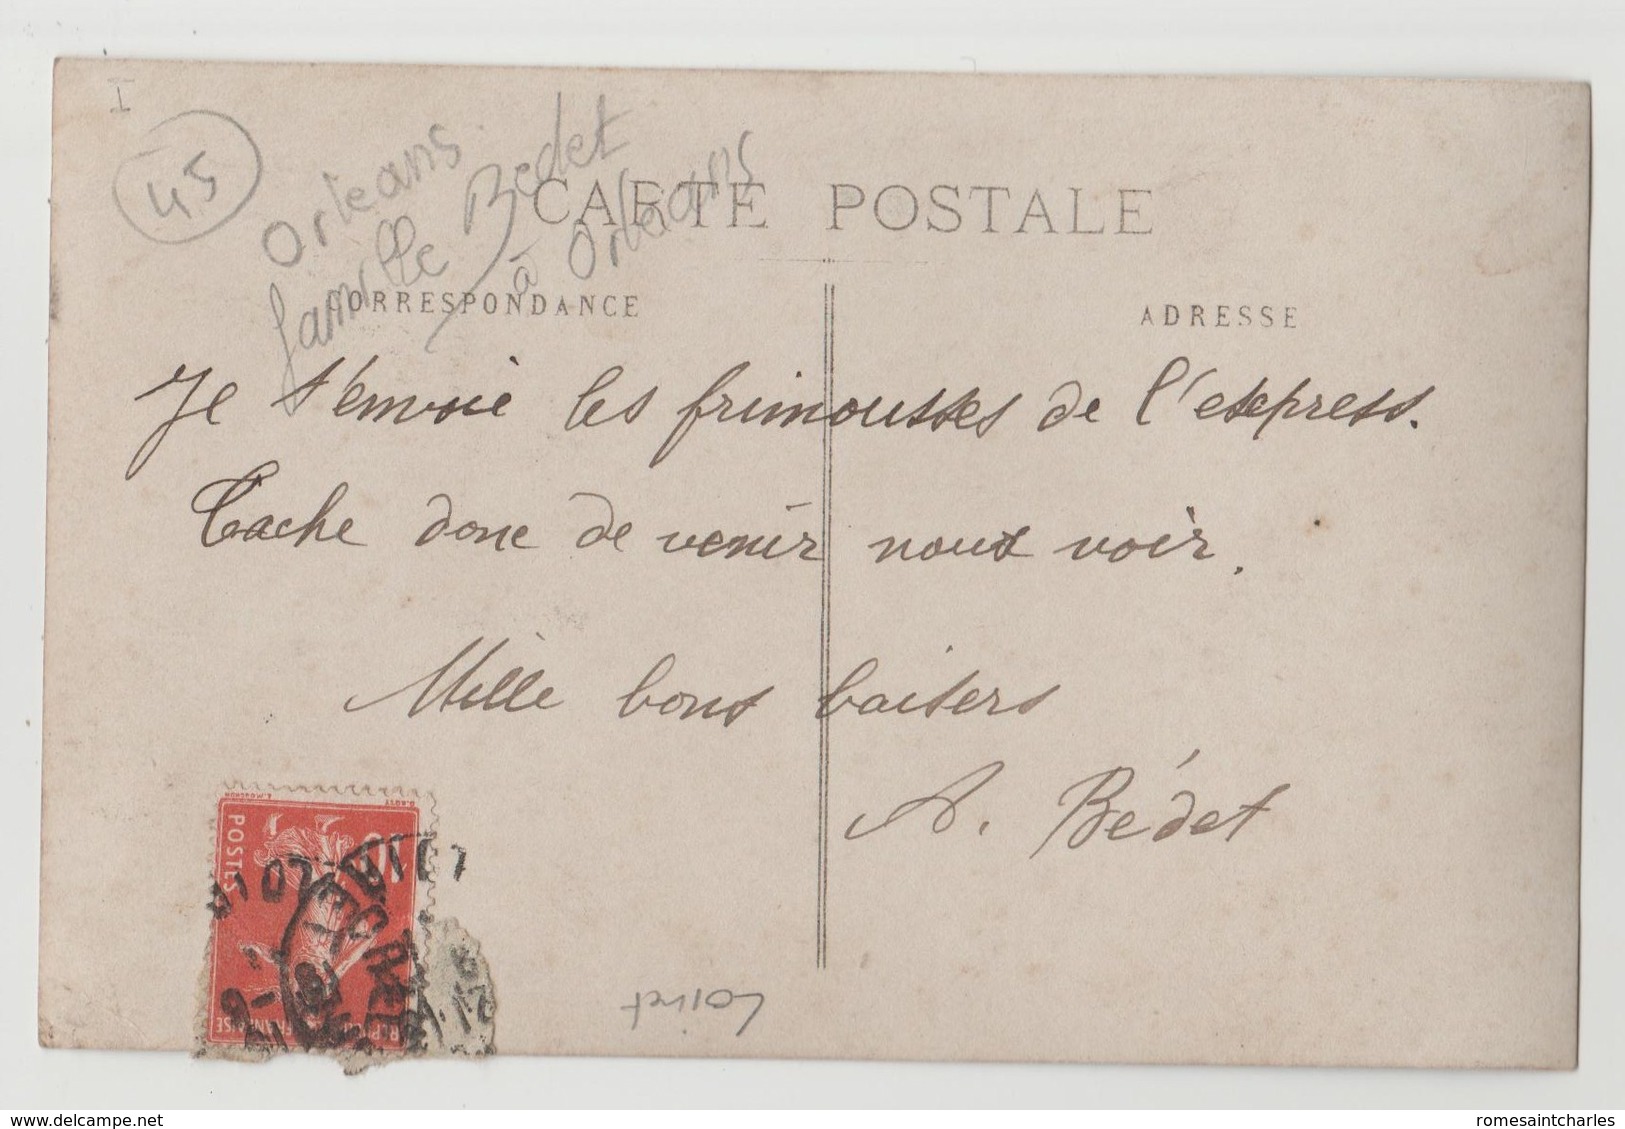 I
45
Orleans
famille Bedet
à Orleans
CARTE POSTALE
CORRESPONDANCE
ADRESSE
Je t'envoie les frimousses de l'express.
Tache donc de venir nous voir.
Mille bons baisers
A. Bédet
POSTES
10
Loiret
delcampe.net
romesaintcharles